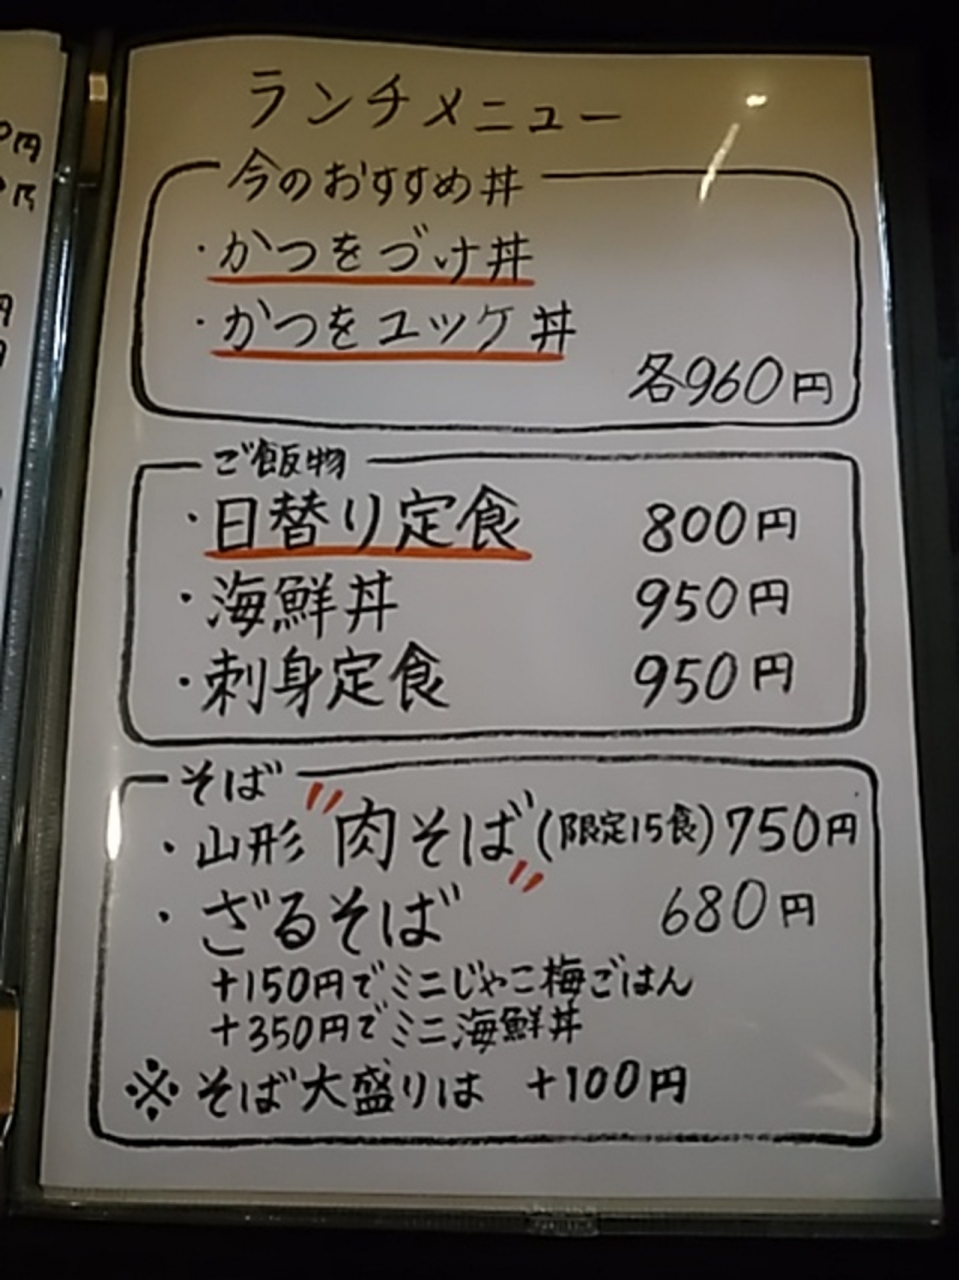 ランチメニュー
今のおすすめ丼
・かつをづけ丼
・かつをユッケ丼
各960円
ご飯物
・日替り定食 800円
・海鮮丼 950円
・刺身定食 950円
そば
・山形"肉そば"(限定15食)750円
・ざるそば 680円
+150円でミニじゃこ梅ごはん
+350円でミニ海鮮丼
※そば大盛りは +100円